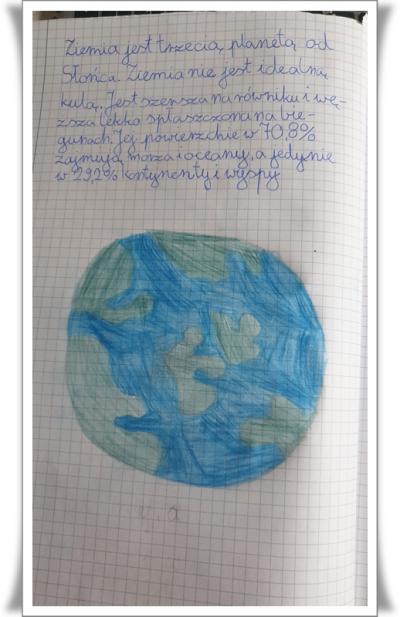 Ziemia jest trzecią planetą od
Słońca. Ziemia nie jest idealną
kulą. Jest szersza na równiku i wę-
ższa lekko spłaszczona na bie-
gunach. Jej powierzchie w 70,8%
zajmują morza i oceany, a jedynie
w 29,2% kontynenty i wyspy